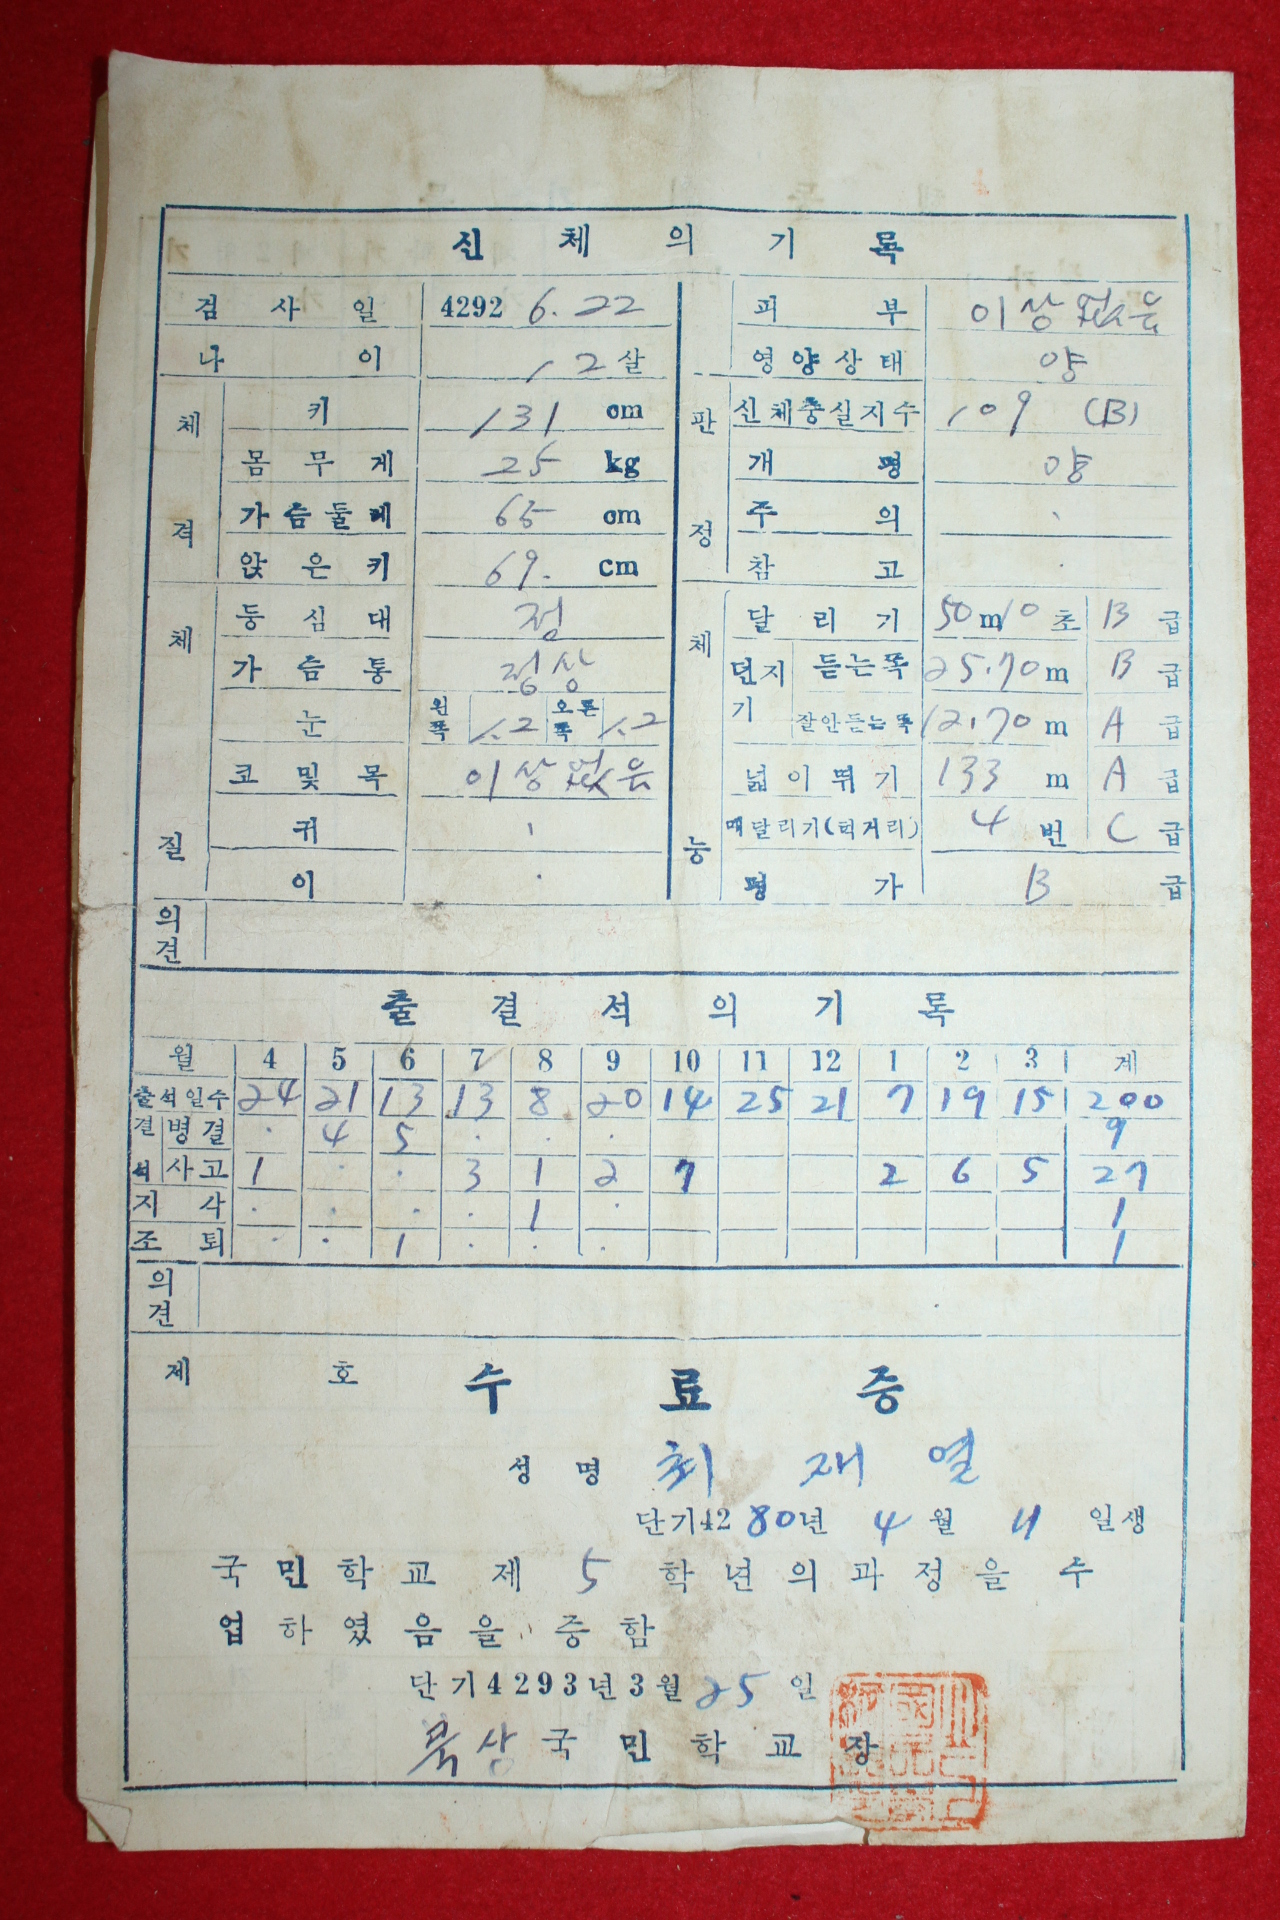 신체의 기록
검사일 4292 6. 22 피부 이상없음
나이 12살 영양상태 양
체격 키 131 cm 판정 신체충실지수 109 (B)
몸무게 25 kg 개평 양
가슴둘레 65 cm 주의
앉은키 69. cm 참고
체질 등심대 정 체능 달리기 50m 10초 B급
가슴통 정상 던지기 듣는쪽 25.70m B급
눈 왼쪽 1.2 오른쪽 1.2 잘안듣는쪽 12.70m A급
코및목 이상없음 넓이뛰기 133 m A급
귀 매달리기(턱거리) 4번 C급
이 평가 B급
의견
출결석의 기록
월 4 5 6 7 8 9 10 11 12 1 2 3 계
출석일수 24 21 13 13 8 20 14 25 21 7 19 15 200
결석 병결 4 5 9
사고 1 3 1 2 7 2 6 5 27
지각 1 1
조퇴 1 1
의견
제 호 수료증
성명 최재열
단기4280년 4월 11일생
국민학교 제 5 학년의 과정을 수
업하였음을 증함
단기4293년3월 25일
북상국민학교장